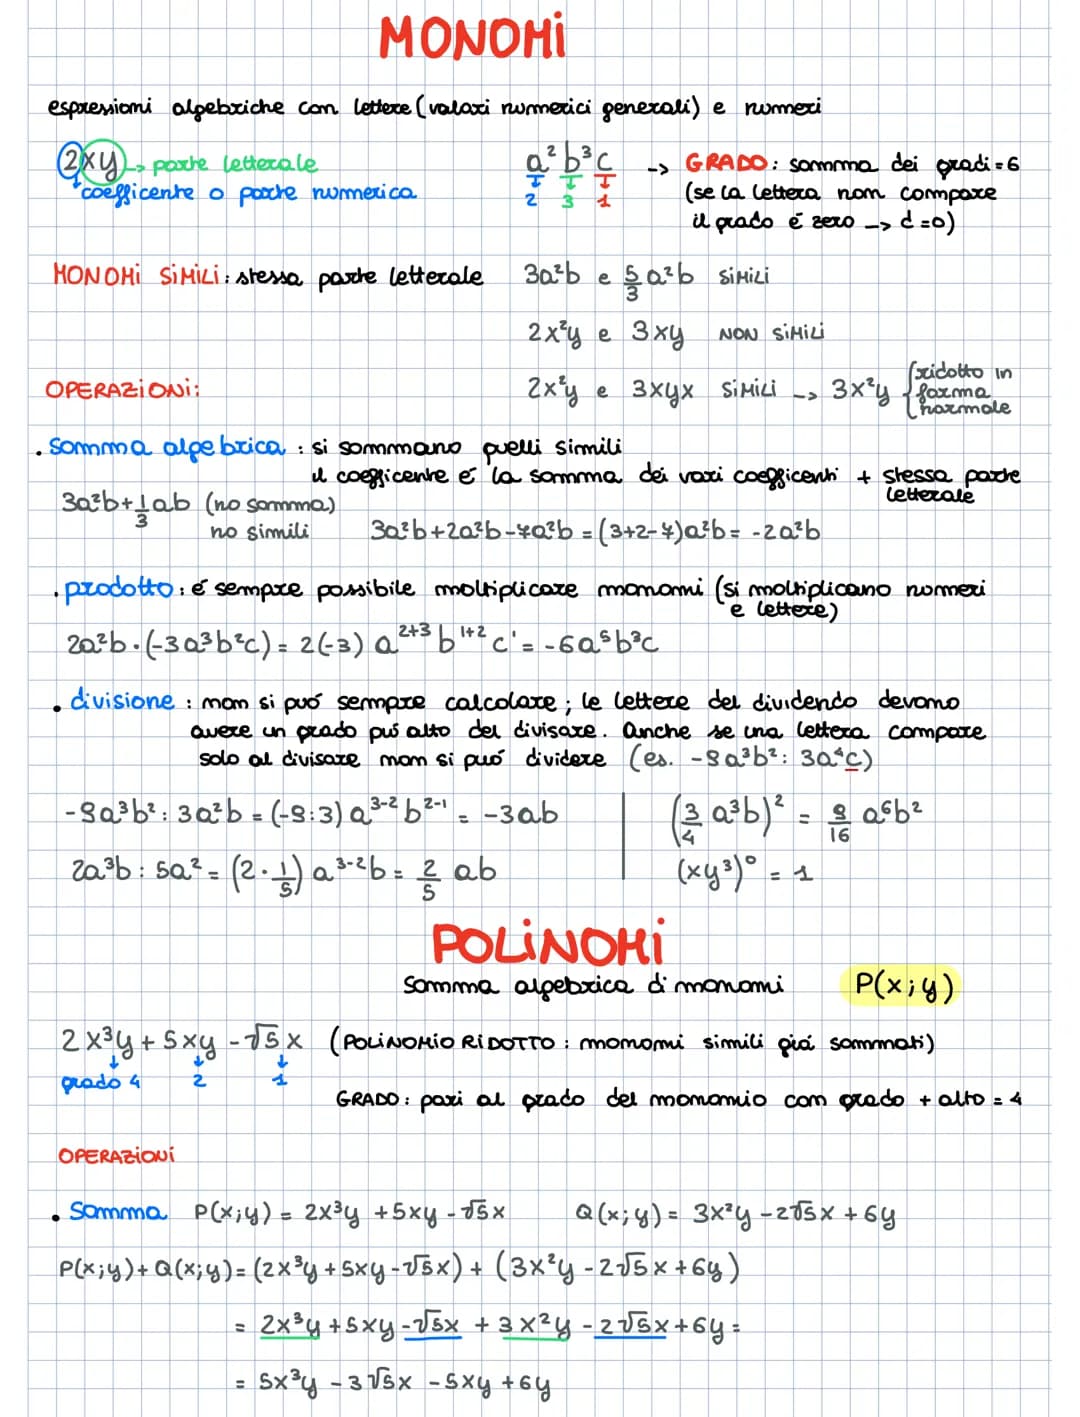 MONOMI
espressioni algebriche con lettere (valori numerici generali) e numeri
2xy -> parte letterale
coefficente o parte numerica
a²b³c -> GRADO: somma dei gradi=6
2 3 1
(se la lettera non compare
il grado é zero -> d=0)
MONOMI SIMILI: stessa parte letterale 3a²b e 5/3 a²b SIMILI
2x²y e 3xy NON SIMILI
OPERAZIONI: 2x²y e 3xyx SIMILI -> 3x²y {ridotto in
forma
normale
. somma algebrica : si sommano quelli simili
il coefficente é la somma dei vari coefficenti + stessa parte
letterale
3a²b+1/3 ab (no somma)
no simili 3a²b+2a²b-7a²b = (3+2-7)a²b = -2a²b
. prodotto: é sempre possibile moltiplicare monomi (si moltiplicano numeri
e lettere)
2a²b·(-3a³b²c) = 2(-3) a²⁺³ b¹⁺² c¹ = -6a⁵b³c
. divisione : non si puó sempre calcolare; le lettere del dividendo devono
avere un grado piú alto del divisore. Anche se una lettera compare
solo al divisore non si puó dividere (es. -9a³b² : 3a⁴c)
-9a³b² : 3a²b = (-9:3) a³⁻² b²⁻¹ = -3ab
(3/4 a³b)² = 9/16 a⁶b²
2a³b : 5a² = (2·1/5) a³⁻²b = 2/5 ab
(xy³)⁰ = 1
POLINOMI
somma algebrica di monomi P(x;y)
2x³y + 5xy -√5x (POLINOMIO RIDOTTO : monomi simili giá sommati)
grado 4 2 1
GRADO: pari al grado del monomio con grado + alto = 4
OPERAZIONI
. Somma P(x;y) = 2x³y +5xy -√5x Q(x;y) = 3x²y -2√5x + 6y
P(x;y)+Q(x;y)= (2x³y +5xy -√5x) + (3x²y -2√5x +6y)
= 2x³y +5xy -√5x + 3x²y -2√5x +6y =
= 5x³y -3√5x -5xy +6y